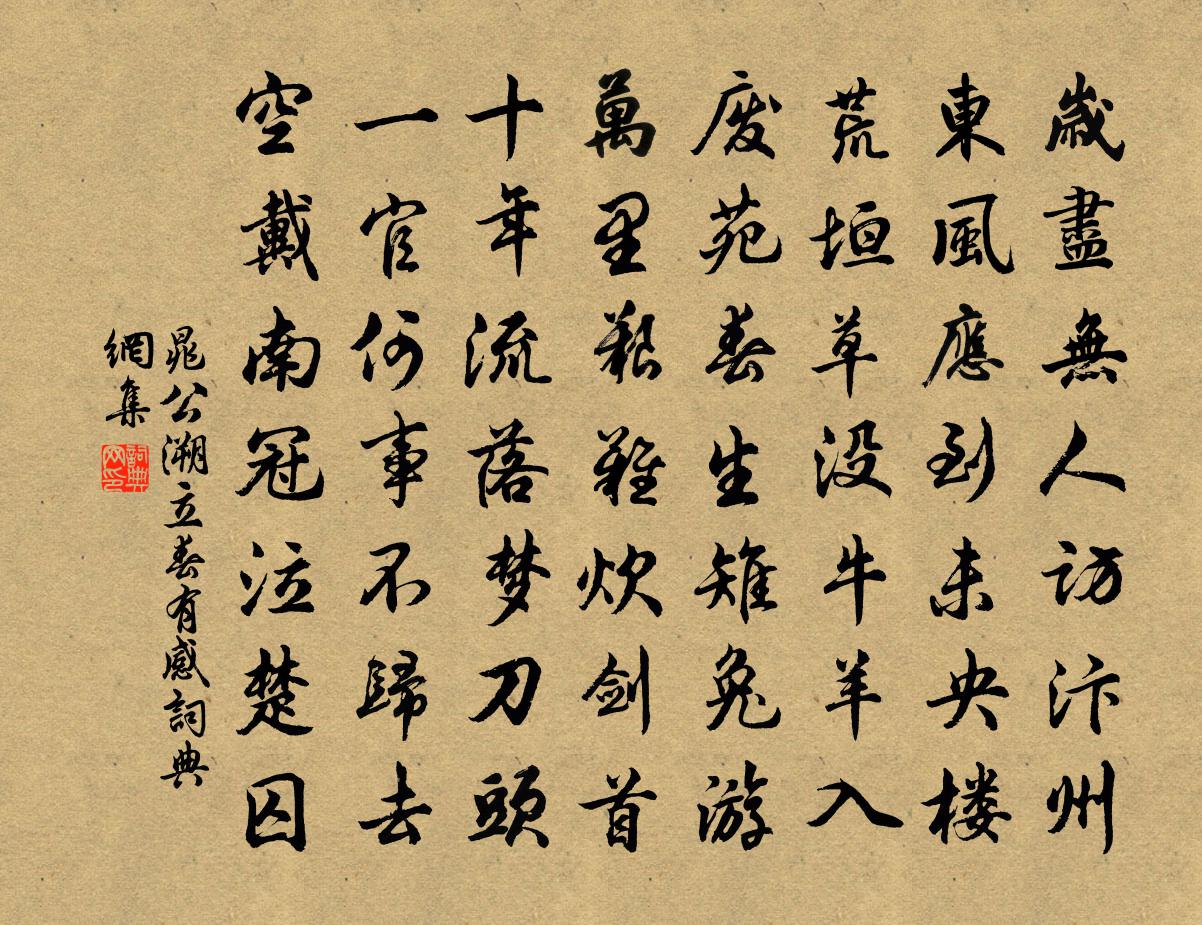 歲盡無人訪汴州
東風應到未央楼
荒垣草没牛羊入
废苑春生雉兔游
萬里艱難炊剑首
十年流落梦刀頭
一官何事不歸去
空戴南冠泣楚囚
晁公溯立春有感詞典
網集
詞典
网印